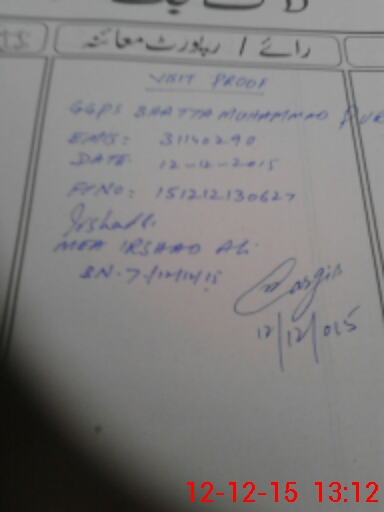 رائے / رپورٹ معائنہ
VISIT PROOF
GGPS BHATTA MUHAMMAD PUR
EMIS: 31140290
DATE 12-12-2015
FFNO: 151212130627
Irshad
MEA IRSHAD Ali
SN-7/12/12/15
Nargis
12/12/015
12-12-15 13:12